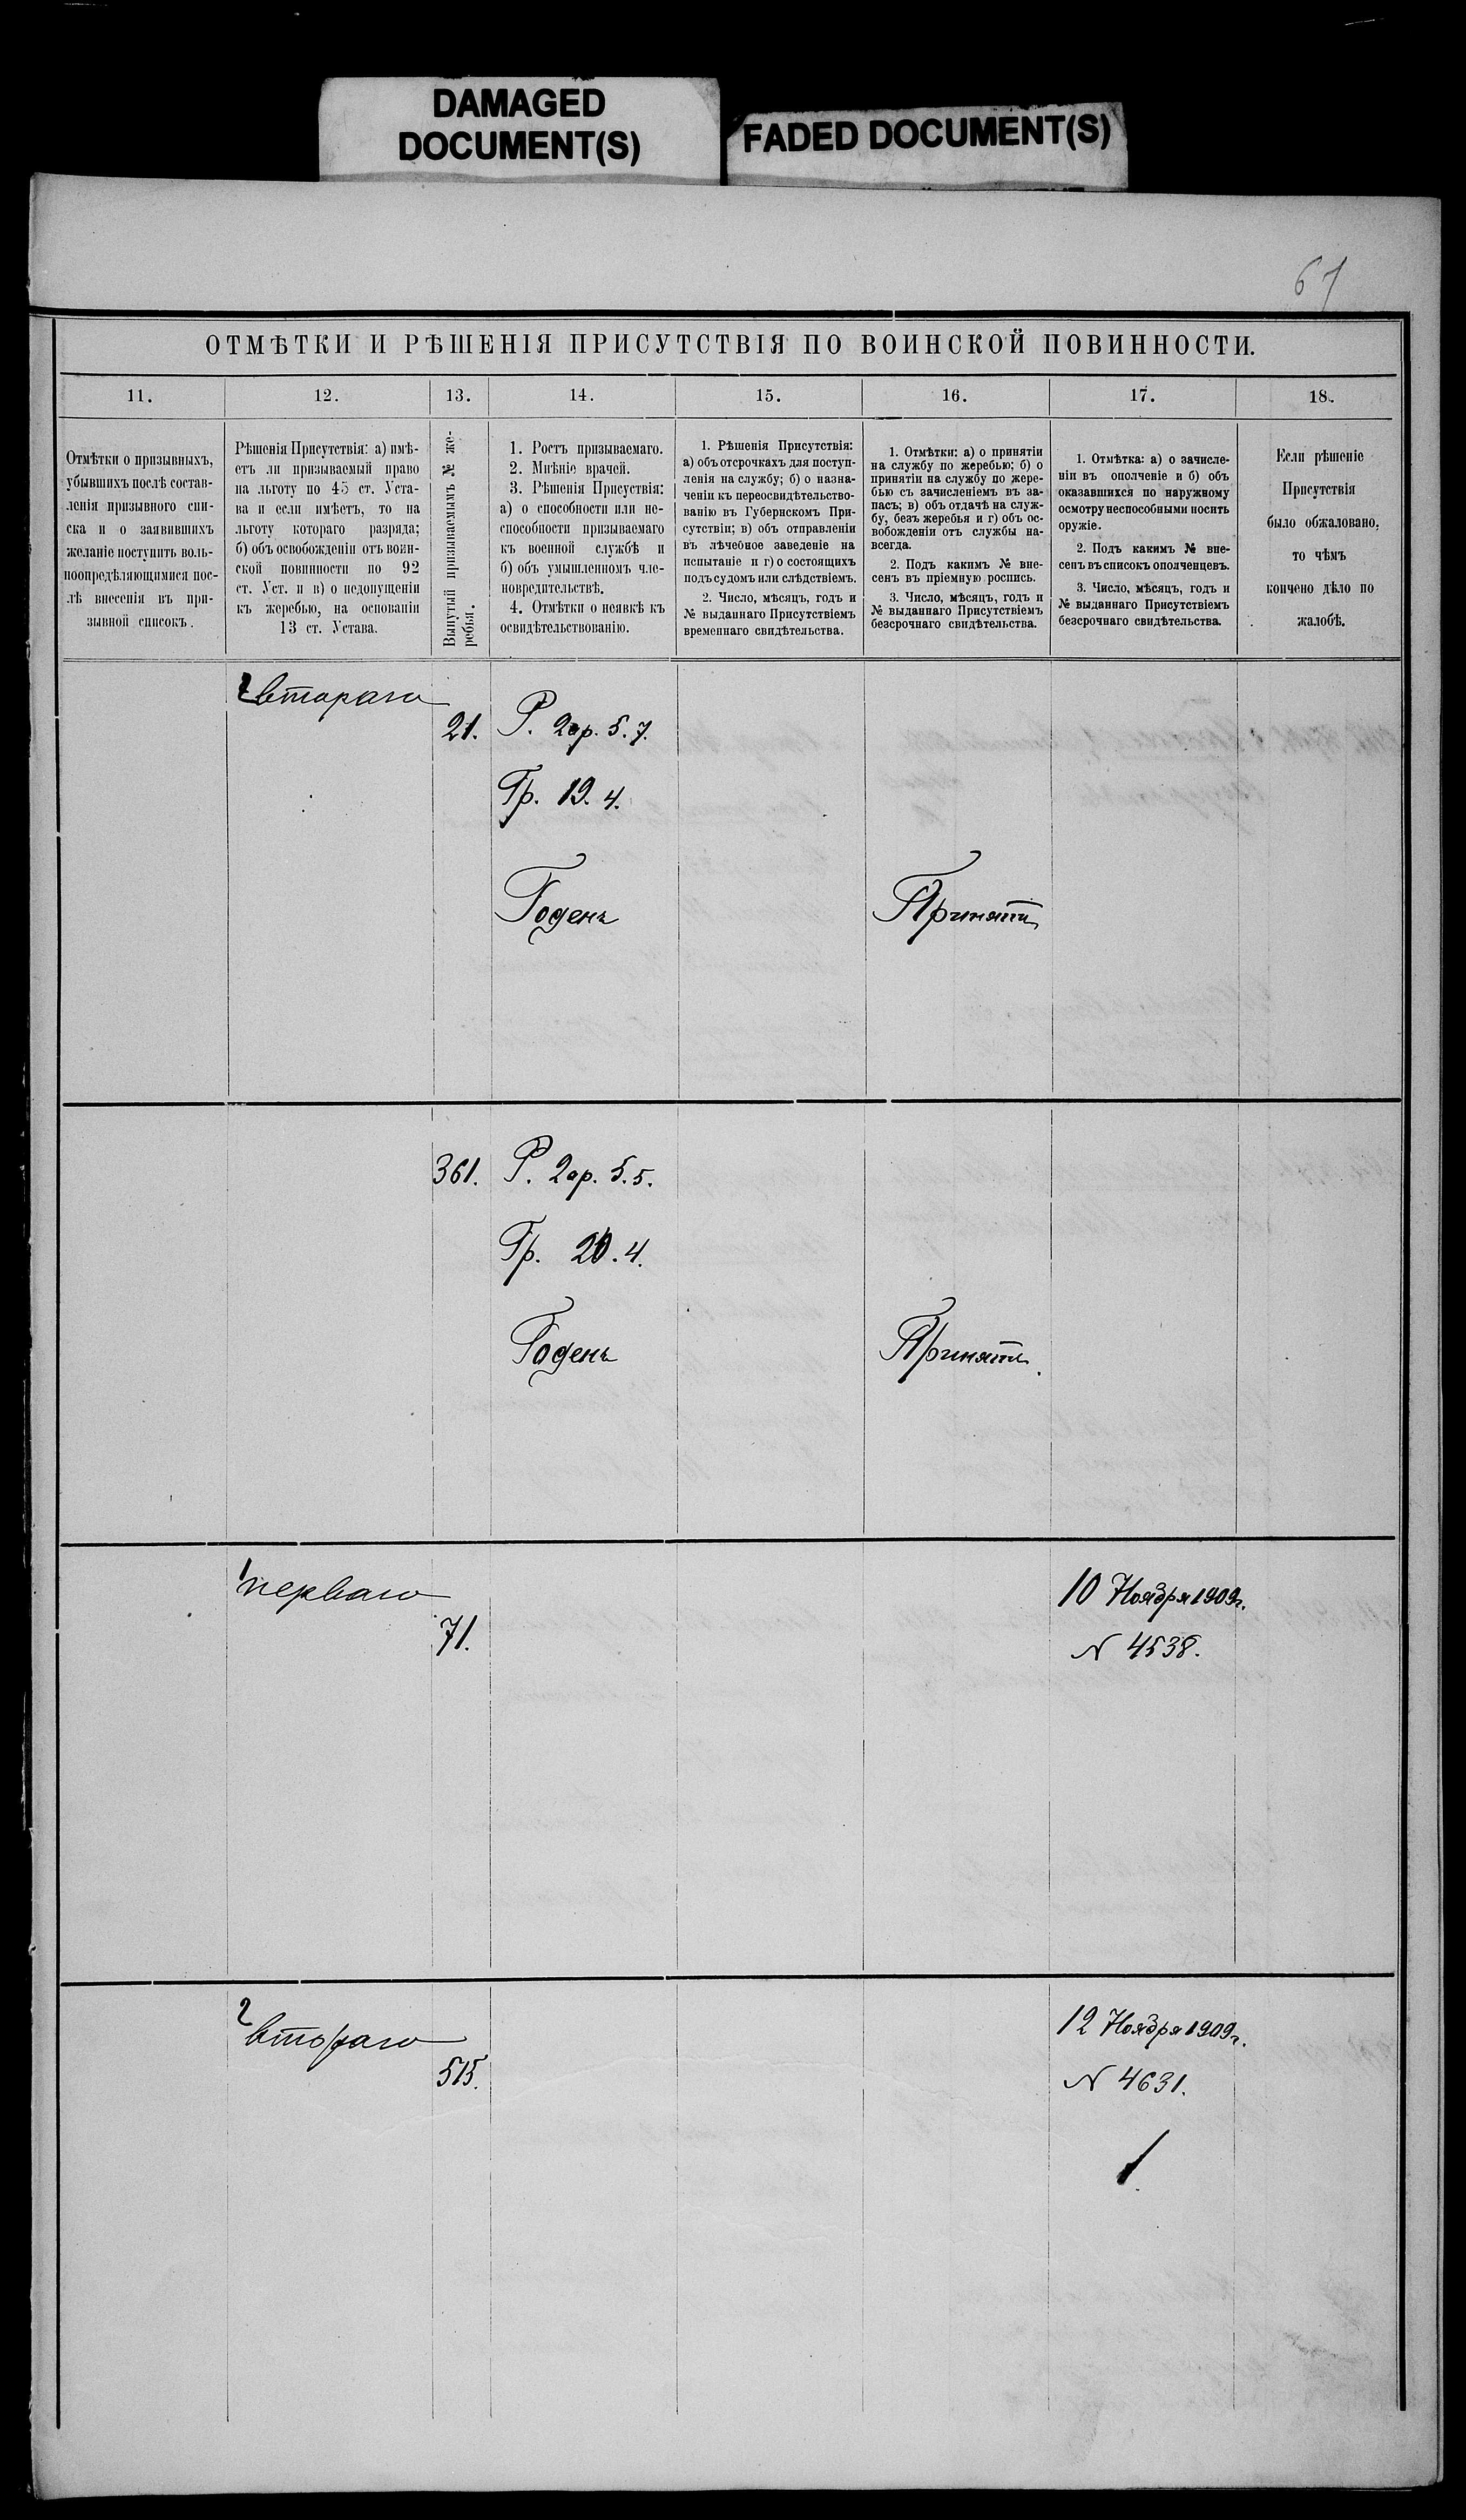 DAMAGED
DOCUMENT(S)
FADED DOCUMENT(S)
67
ОТМѢТКИ И РѢШЕНІЯ ПРИСУТСТВІЯ ПО ВОИНСКОЙ ПОВИННОСТИ.
11.
12.
13.
14.
15.
16.
17.
18.
Отмѣтки о призывныхъ,
убывшихъ послѣ состав-
ленія призывного спи-
ска и о заявившихъ
желаніе поступить воль-
ноопредѣляющимися пос-
лѣ внесенія въ при-
зывной списокъ.
Рѣшенія Присутствія: а) имѣ-
етъ ли призываемый право
на льготу по 45 ст. Уста-
ва и если имѣетъ, то на
льготу котораго разряда;
б) объ освобожденіи отъ воин-
ской повинности по 92
ст. Уст. и в) о недопущеніи
къ жеребью, на основаніи
13 ст. Устава.
Вынутый призываемымъ № же-
ребья.
1. Ростъ призываемаго.
2. Мнѣніе врачей.
3. Рѣшенія Присуствія:
а) о способности или не-
способности призываемаго
къ военной службѣ и
б) объ умышленномъ чле-
новредительствѣ.
4. Отмѣтки о неявкѣ къ
освидѣтельствованію.
1. Рѣшенія Присутствія:
а) объ отсрочкахъ для поступ-
ленія на службу; б) о назна-
ченіи къ переосвидѣтельство-
ванію въ Губернскомъ При-
сутствіи; в) объ отправленіи
въ лѣчебное заведеніе на
испытаніе и г) о состоящихъ
подъ судомъ или слѣдствіемъ.
2. Число, мѣсяцъ, годъ и
№ выданнаго Присутствіемъ
временнаго свидѣтельства.
1. Отмѣтки: а) о принятіи
на службу по жеребью; б) о
принятіи на службу по жере-
бью съ зачисленіемъ въ за-
пасъ; в) объ отдачѣ на служ-
бу, безъ жеребья и г) объ ос-
вобожденіи отъ службы на-
всегда.
2. Подъ какимъ № вне-
сенъ въ пріемную роспись.
3. Число, мѣсяцъ, годъ и
№ выданнаго Присутствіемъ
безсрочнаго свидѣтельства.
1. Отмѣтка: а) о зачисле-
ніи въ ополченіе и б) объ
оказавшихся по наружному
осмотру неспособными носить
оружіе.
2. Подъ какимъ № вне-
сенъ въ списокъ ополченцевъ.
3. Число, мѣсяцъ, годъ и
№ выданнаго Присутствіемъ
безсрочнаго свидѣтельства.
Если рѣшеніе
Присутствія
было обжаловано,
то чѣмъ
кончено дѣло по
жалобѣ.
2 втораго
21.
Р. 2ар. 5. 7.
Гр. 19. 4.
Годенъ
Принятъ
361.
Р. 2ар. 5. 5.
Гр. 20. 4.
Годенъ
Принятъ.
1 перваго
71.
10 Ноября 1909г.
N 4538.
2
втораго
515.
12 Ноября 1909г.
N 4631.
1